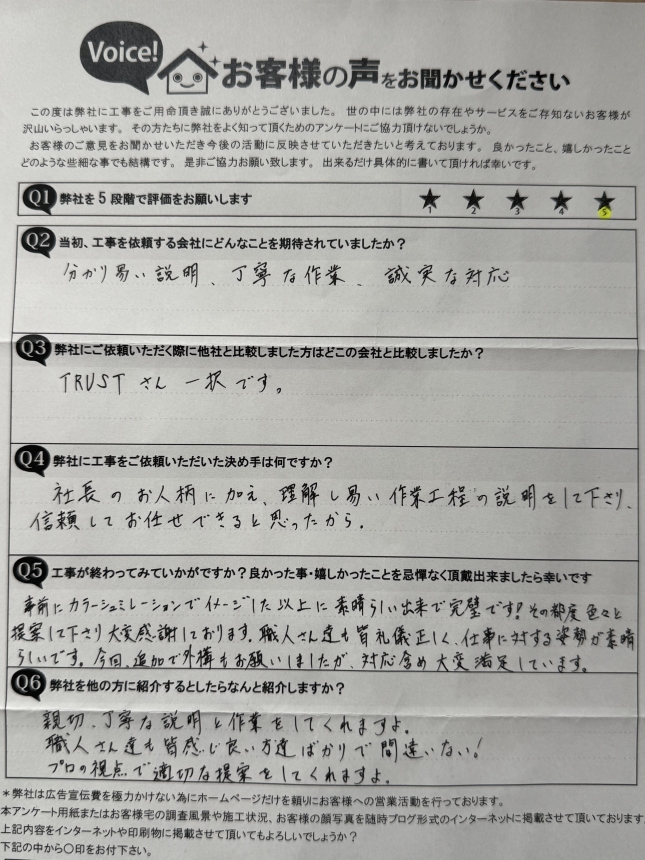 Voice!
お客様の声をお聞かせください
この度は弊社に工事をご用命頂き誠にありがとうございました。 世の中には弊社の存在やサービスをご存知ないお客様が
沢山いらっしゃいます。 その方たちに弊社をよく知って頂くためのアンケートにご協力頂けないでしょうか。
お客様のご意見をお聞かせいただき今後の活動に反映させていただきたいと考えております。 良かったこと、嬉しかったこと
どのような些細な事でも結構です。 是非ご協力お願い致します。 出来るだけ具体的に書いて頂ければ幸いです。
Q1 弊社を5段階で評価をお願いします ★1 ★2 ★3 ★4 ★5
Q2 当初、工事を依頼する会社にどんなことを期待されていましたか？
分かり易い説明、丁寧な作業、誠実な対応
Q3 弊社にご依頼いただく際に他社と比較しました方はどこの会社と比較しましたか？
TRUSTさん一択です。
Q4 弊社に工事をご依頼いただいた決め手は何ですか？
社長のお人柄に加え、理解し易い作業工程の説明をして下さり、
信頼してお任せできると思ったから。
Q5 工事が終わってみていかがですか？良かった事・嬉しかったことを忌憚なく頂戴出来ましたら幸いです
事前にカラーシュミレーションでイメージした以上に素晴らしい出来で完璧です！その都度色々と
提案して下さり大変感謝しております。職人さん達も皆礼儀正しく、仕事に対する姿勢が素晴
らしいです。今回、追加で外構もお願いしましたが、対応含め大変満足しています。
Q6 弊社を他の方に紹介するとしたらなんと紹介しますか？
親切、丁寧な説明と作業をしてくれますよ。
職人さん達も皆感じ良い方達ばかりで間違いない！
プロの視点で適切な提案をしてくれますよ。
＊弊社は広告宣伝費を極力かけない為にホームページだけを頼りにお客様への営業活動を行っております。
本アンケート用紙またはお客様宅の調査風景や施工状況、お客様の顔写真を随時ブログ形式のインターネットに掲載させて頂いております
上記内容をインターネットや印刷物に掲載させて頂いてもよろしいでしょうか？
下記の中から〇印をお付下さい。